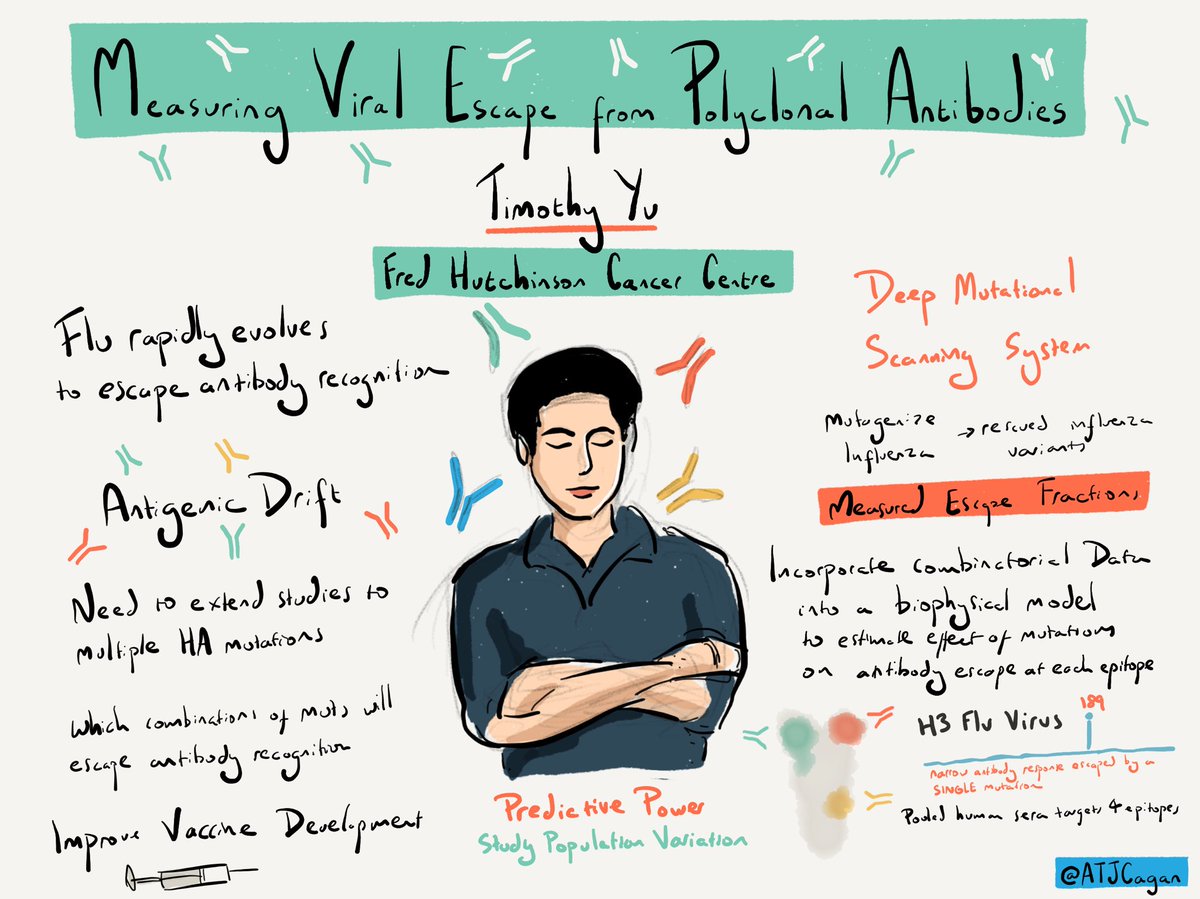 Measuring Viral Escape from Polyclonal Antibodies
Timothy Yu
Fred Hutchinson Cancer Centre
Flu rapidly evolves
to escape antibody recognition
Antigenic Drift
Need to extend studies to
multiple HA mutations
Which combinations of muts will
escape antibody recognition
Improve Vaccine Development
Predictive Power
Study Population Variation
Deep Mutational
Scanning System
Mutagenize
Influenza
→ rescued influenza
variants
Measured Escape Fractions
Incorporate combinatorial Data
into a biophysical model
to estimate effect of mutations
on antibody escape at each epitope
H3 Flu Virus
189
narrow antibody response escaped by a
SINGLE mutation
Pooled human sera targets 4 epitopes
@ATJCagan